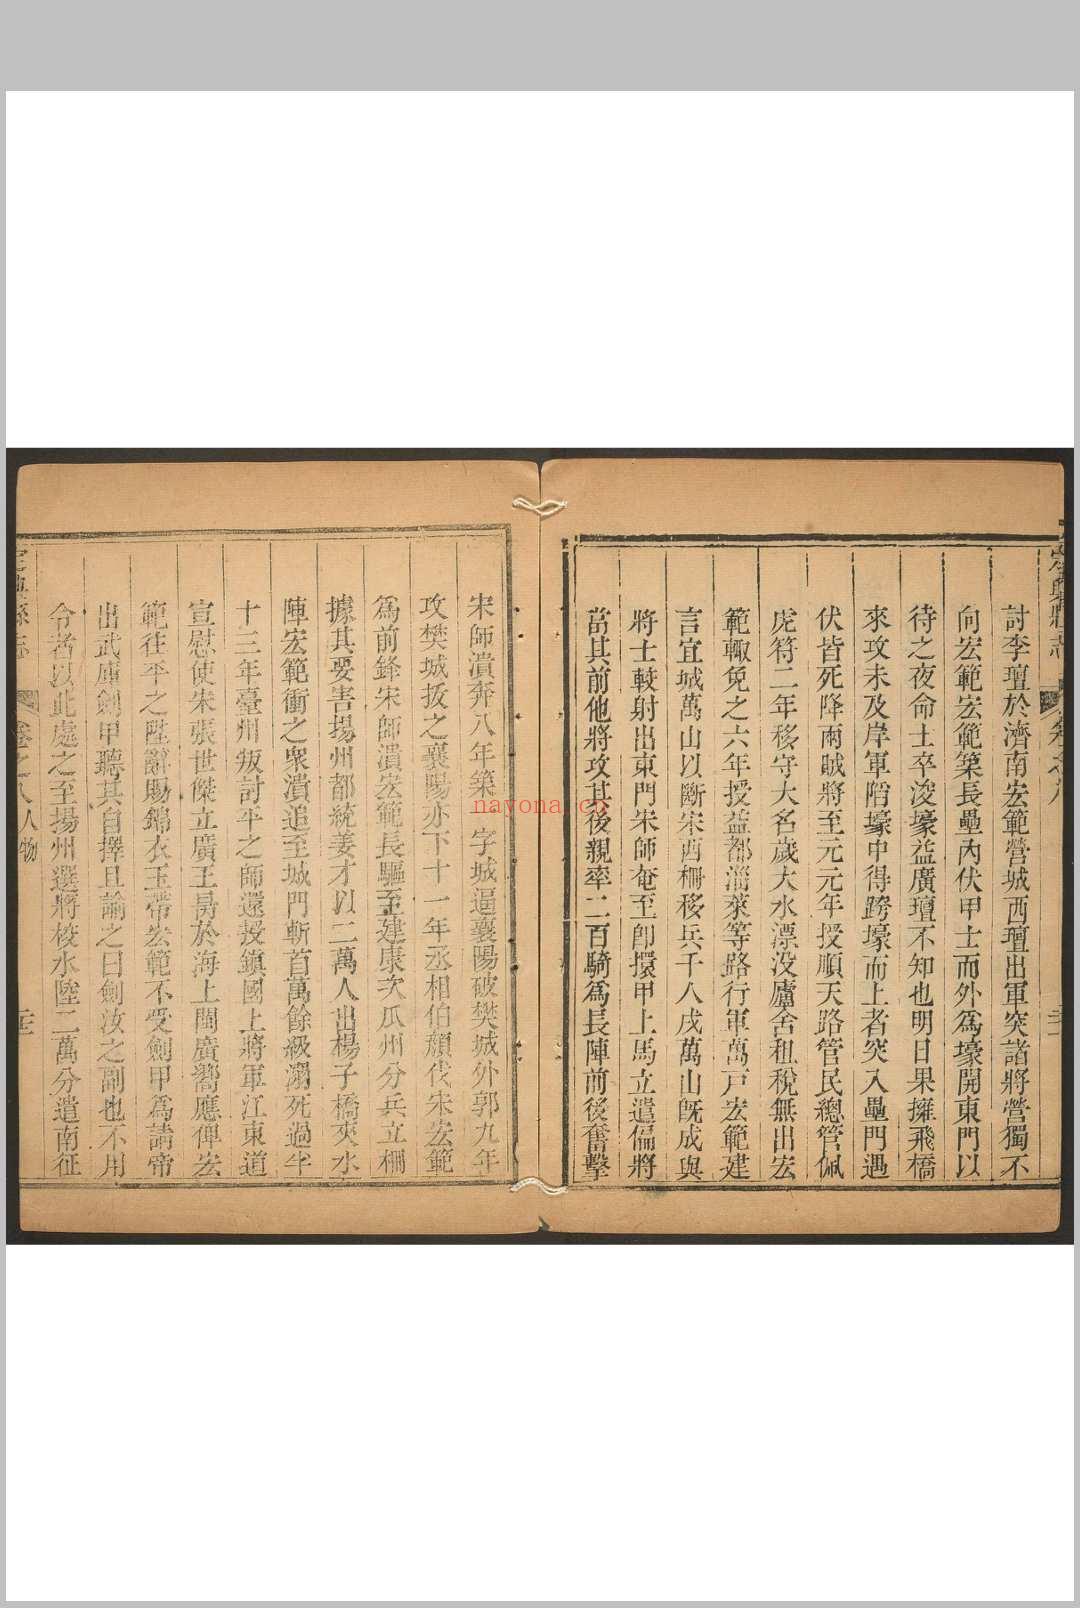 討李璮於濟南宏範營城西璮出軍突諸將營獨不
向宏範宏範築長壘內伏甲士而外爲壕開東門以
待之夜命士卒浚壕益廣璮不知也明日果擁飛橋
來攻未及岸軍陷壕中得跨壕而上者突入壘門遇
伏皆死降兩賊將至元元年授順天路管民總管佩
虎符二年移守大名歲大水漂没廬舍租稅無出宏
範輙免之六年授益都淄萊等路行軍萬戸宏範建
言宜城萬山以斷宋西柵移兵千人戌萬山旣成與
將士較射出東門宋師奄至卽擐甲上馬立遣偏將
當其前他將攻其後親率二百騎爲長陣前後奮擊
宋師潰奔八年築 字城逼襄陽破樊城外郭九年
攻樊城拔之襄陽亦下十一年丞相伯顏伐宋宏範
爲前鋒宋師潰宏範長驅至建康次瓜州分兵立柵
據其要害揚州都統姜才以二萬人出楊子橋夾水
陣宏範衝之衆潰追至城門斬首萬餘級溺死過半
十三年臺州叛討平之師還授鎮國上將軍江東道
宣慰使宋張世傑立廣王昺於海上閩廣嚮應俾宏
範往平之陛辭賜錦衣玉帶宏範不受劍甲爲請帝
出武庫劍甲聽其自擇且諭之曰劍汝之副也不用
令者以此處之至揚州選將校水陸二萬分遣南征
定興縣志 卷之八 人物
nayona.cn